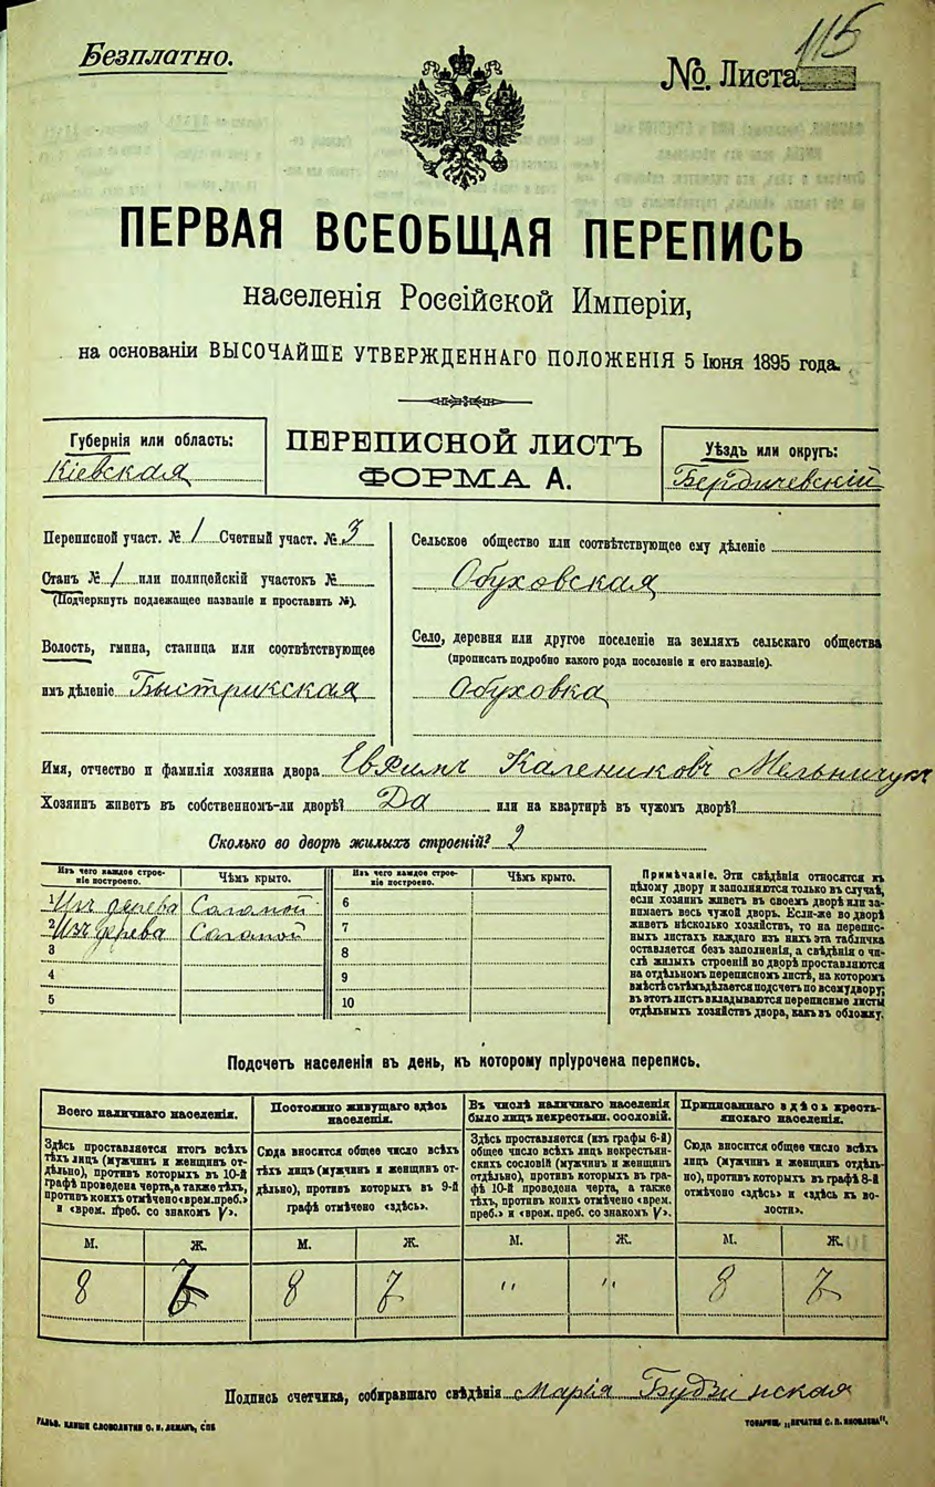 Безплатно.
№. Листа 115
ПЕРВАЯ ВСЕОБЩАЯ ПЕРЕПИСЬ
населенія Россійской Имперіи,
на основаніи ВЫСОЧАЙШЕ УТВЕРЖДЕННАГО ПОЛОЖЕНІЯ 5 Іюня 1895 года.
Губернія или область:
Кіевская
ПЕРЕПИСНОЙ ЛИСТЪ
ФОРМА А.
Уѣздъ или округъ:
Бердичевскій
Переписной участ. № 1 Счетный участ. № 3
Станъ № 1 или полицейскій участокъ №
(Подчеркнуть подлежащее названіе и проставить №).
Волость, гмина, станица или соотвѣтствующее
имъ дѣленіе Быстрикская
Сельское общество или соотвѣтствующее ему дѣленіе
Обуховская
Село, деревня или другое поселеніе на земляхъ сельскаго общества
(прописать подробно какого рода поселеніе и его названіе).
Обуховка
Имя, отчество и фамилія хозяина двора Евфимъ Калениковъ Мельничук
Хозяинъ живетъ въ собственномъ-ли дворѣ? Да или на квартирѣ въ чужомъ дворѣ?
Сколько во дворѣ жилыхъ строеній? 2
Изъ чего каждое строе-
ніе построено.
Чѣмъ крыто.
Изъ чего каждое строе-
ніе построено.
Чѣмъ крыто.
1 Изъ дерева Саламой 6
2 Изъ дерева Саламой 7
3 8
4 9
5 10
Примѣчаніе. Эти свѣдѣнія относятся къ
цѣлому двору и заполняются только въ случаѣ,
если хозяин живетъ въ своемъ дворѣ или за-
нимаетъ весь чужой дворъ. Если-же во дворѣ
живетъ нѣсколько хозяйствъ, то на перепис-
ныхъ листахъ каждаго изъ нихъ эта табличка
оставляется безъ заполненія, а свѣдѣнія о чи-
слѣ жилыхъ строеній во дворѣ проставляются
на отдѣльномъ переписномъ листѣ, на которомъ
вмѣстѣ съ тѣмъ дѣлается подсчетъ по всему двору;
въ этотъ листъ вкладываются переписные листы
отдѣльныхъ хозяйствъ двора, какъ въ обложку.
Подсчетъ населенія въ день, къ которому пріурочена перепись.
Всего наличнаго населенія.
Здѣсь проставляется итогъ всѣхъ
тѣхъ лицъ (мужчинъ и женщинъ от-
дѣльно), противъ которыхъ въ 10-й
графѣ проведена черта, а также тѣхъ,
противъ коихъ отмѣчено «врем. преб.»
и «врем. преб. со знакомъ V».
Постоянно живущаго здѣсь
населенія.
Сюда вносится общее число всѣхъ
тѣхъ лицъ (мужчинъ и женщинъ от-
дѣльно), противъ которыхъ въ 9-й
графѣ отмѣчено «здѣсь».
Въ числѣ наличнаго населенія
было лицъ некрестьян. сословій.
Здѣсь проставляется (изъ графы 6-й)
общее число всѣхъ лицъ некрестьян-
скихъ сословій (мужчинъ и женщинъ
отдѣльно), противъ которыхъ въ гра-
фѣ 10-й проведена черта, а также
тѣхъ, противъ коихъ отмѣчено «врем.
преб.» и «врем. преб. со знакомъ V».
Приписаннаго здѣсь кресть-
янскаго населенія.
Сюда вносится общее число всѣхъ
лицъ (мужчинъ и женщинъ отдѣль-
но), противъ которыхъ въ графѣ 8-й
отмѣчено «здѣсь» и «здѣсь къ во-
лости».
М. Ж. М. Ж. М. Ж. М. Ж.
8 7 8 7 " " 8 7
Подпись счетчика, собиравшаго свѣдѣнія Марія Будзинская
ГАЛЬВ. КЛИШЕ СЛОВОЛИТНИ О. И. ЛЕМАНЪ, СПБ
ТОВАРИЩ. „ПЕЧАТНЯ С. П. ЯКОВЛЕВА".